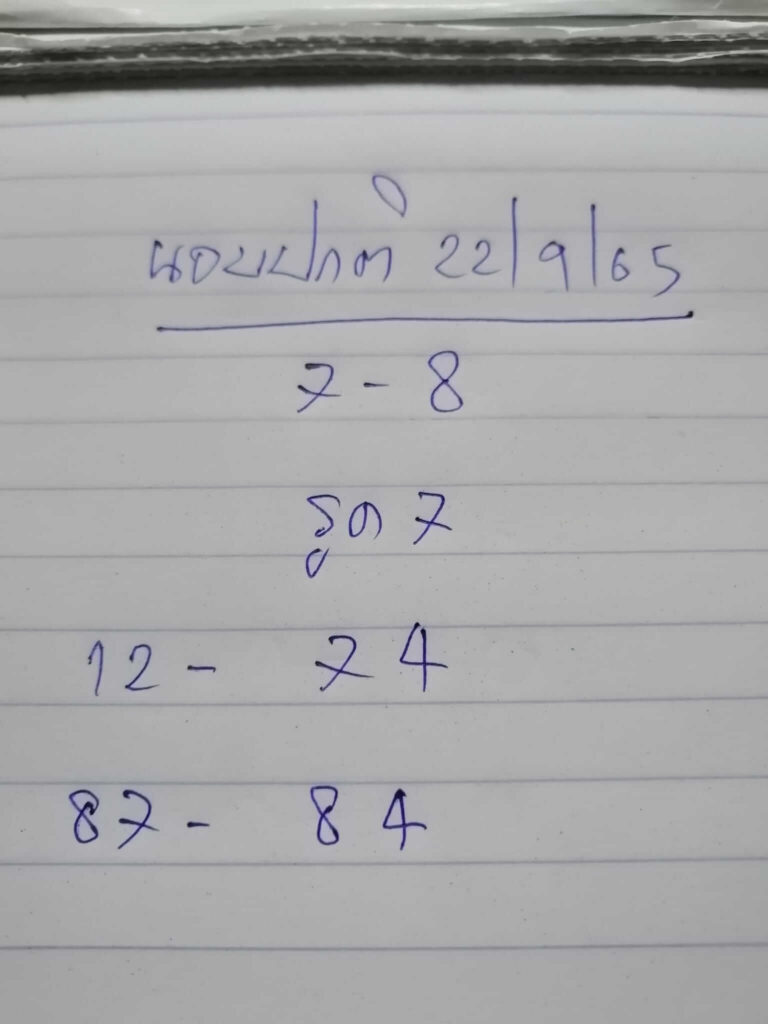 นอยปกติ 22/9/65
7 - 8
รูด 7
12 - 74
87 - 84